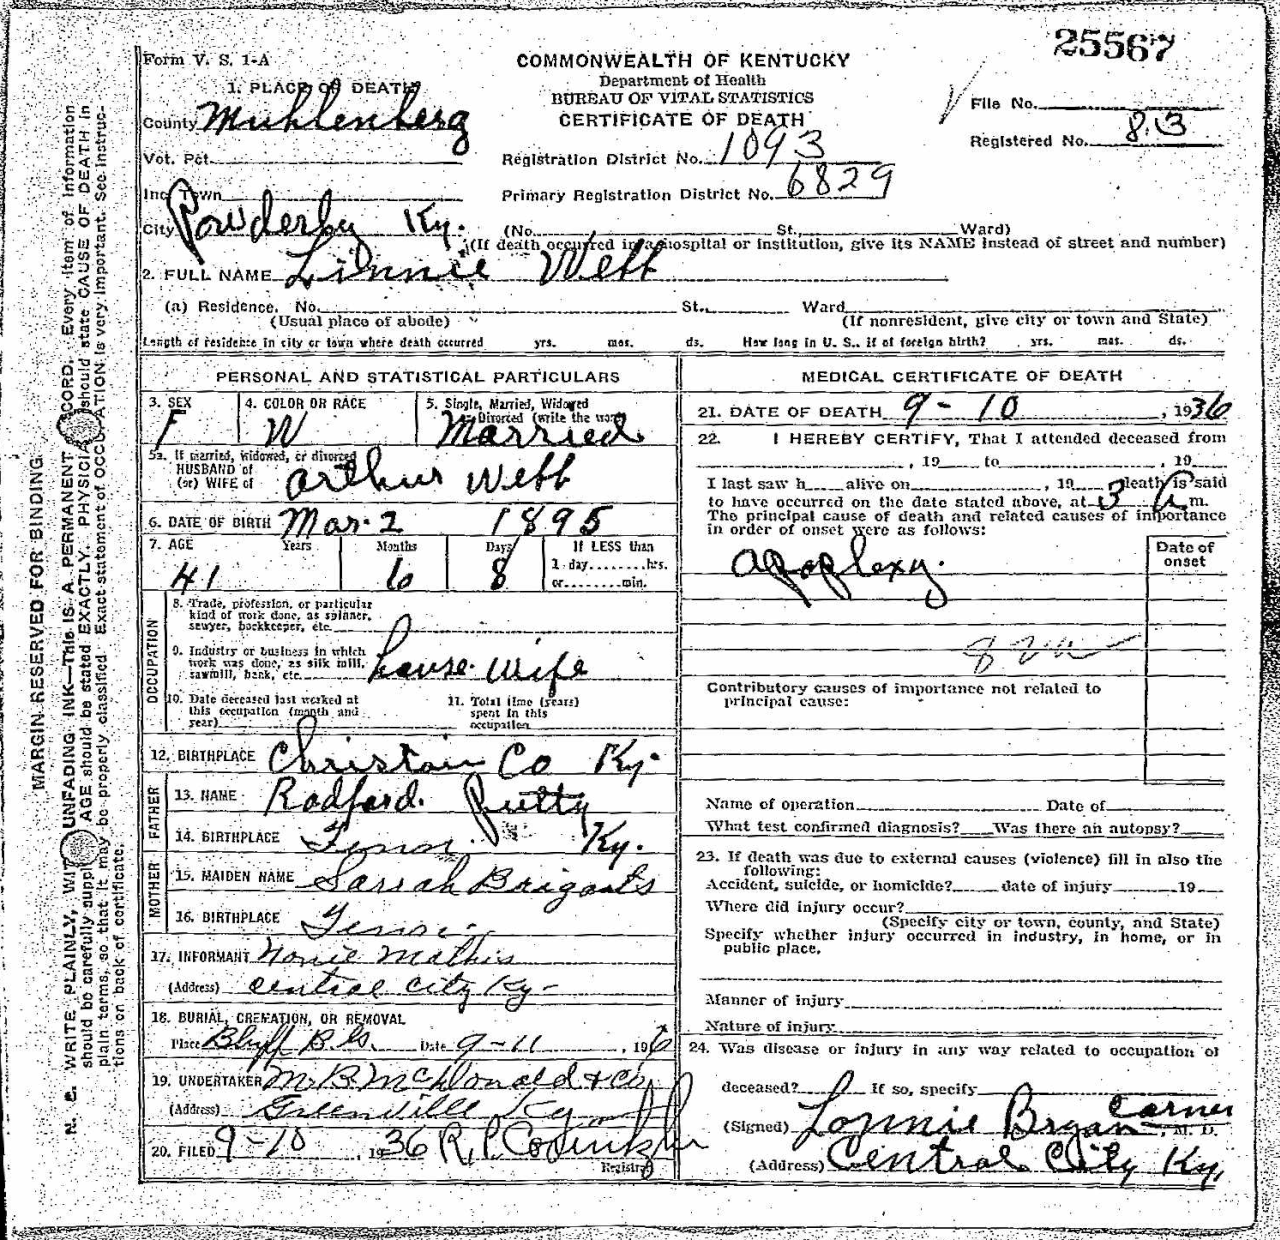 25567
Form V. S. 1-A
COMMONWEALTH OF KENTUCKY
Department of Health
BUREAU OF VITAL STATISTICS
CERTIFICATE OF DEATH
File No.
Registered No. 83
1. PLACE OF DEATH
County Muhlenberg
Vot. Pct.
Registration District No. 1093
Inc. Town
Primary Registration District No. 6829
City Powderly Ky. (No. St., Ward)
(If death occurred in a hospital or institution, give its NAME instead of street and number)
2. FULL NAME Linnie Webb
(a) Residence. No. St., Ward
(Usual place of abode) (If nonresident, give city or town and State)
Length of residence in city or town where death occurred yrs. mos. ds. How long in U. S., if of foreign birth? yrs. mos. ds.
PERSONAL AND STATISTICAL PARTICULARS
3. SEX 4. COLOR OR RACE 5. Single, Married, Widowed
or Divorced (write the word)
F W Married
5a. If married, widowed, or divorced
HUSBAND of
(or) WIFE of Arthur Webb
6. DATE OF BIRTH Mar. 2 1895
7. AGE Years Months Days If LESS than
1 day........hrs.
or........min.
41 6 8
OCCUPATION
8. Trade, profession, or particular
kind of work done, as spinner,
sawyer, bookkeeper, etc.
9. Industry or business in which
work was done, as silk mill,
sawmill, bank, etc. house wife
10. Date deceased last worked at
this occupation (month and
year)
11. Total time (years)
spent in this
occupation
12. BIRTHPLACE Christain Co Ky.
FATHER
13. NAME Radford Putty
14. BIRTHPLACE Tenn. Ky.
MOTHER
15. MAIDEN NAME Sarrah
16. BIRTHPLACE Tenn.
17. INFORMANT Mathis
(Address) Central City Ky-
18. BURIAL, CREMATION, OR REMOVAL
Place Bluff Date 9-11, 1936
19. UNDERTAKER M.B. McDonald & Co
(Address) Greenville Ky
20. FILED 9-10, 1936 R. P.
Registrar
MEDICAL CERTIFICATE OF DEATH
21. DATE OF DEATH 9-10, 1936
22. I HEREBY CERTIFY, That I attended deceased from
, 19 to , 19
I last saw h alive on , 19 death is said
to have occurred on the date stated above, at 3 A m.
The principal cause of death and related causes of importance
in order of onset were as follows:
Date of
onset
apoplexy.
Contributory causes of importance not related to
principal cause:
Name of operation Date of
What test confirmed diagnosis? Was there an autopsy?
23. If death was due to external causes (violence) fill in also the
following:
Accident, suicide, or homicide? date of injury 19
Where did injury occur?
(Specify city or town, county, and State)
Specify whether injury occurred in industry, in home, or in
public place.
Manner of injury
Nature of injury
24. Was disease or injury in any way related to occupation of
deceased? If so, specify
(Signed) Lonnie Bryan Corner, M. D.
(Address) Central City Ky.
MARGIN RESERVED FOR BINDING
N. B. WRITE PLAINLY, WITH UNFADING INK—This IS A PERMANENT RECORD. Every item of information
should be carefully supplied. AGE should be stated EXACTLY. PHYSICIANS should state CAUSE OF DEATH in
plain terms, so that it may be properly classified. Exact statement of OCCUPATION is very important. See instruc-
tions on back of certificate.